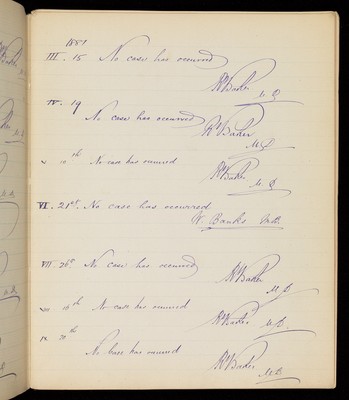 1887
III. 15 No case has occurred
M.D.
IV. 19
No case has occurred
M.D.
V 10th No case has occurred
M.D.
VI. 21st. No case has occurred
W. Banks M.D.
VII 26th. No case has occurred
M.D.
VIII 16th No case has occurred
M.D.
IX 20th
No case has occurred
M.D.